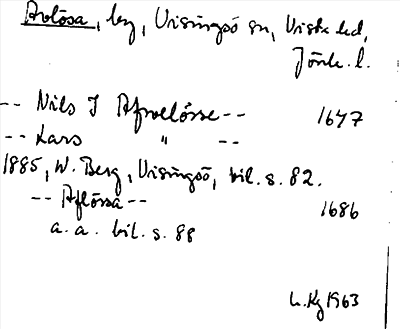 Avlösa, by, Visingsö sn, Vista hd,
Jönk. l.
-- Nils I Afwelösse -- 1647
-- Lars " --
1885, W. Berg, Visingsö, bil. s. 82.
-- Aflössa -- 1686
a. a. bil. s. 88
L. Kg 1963